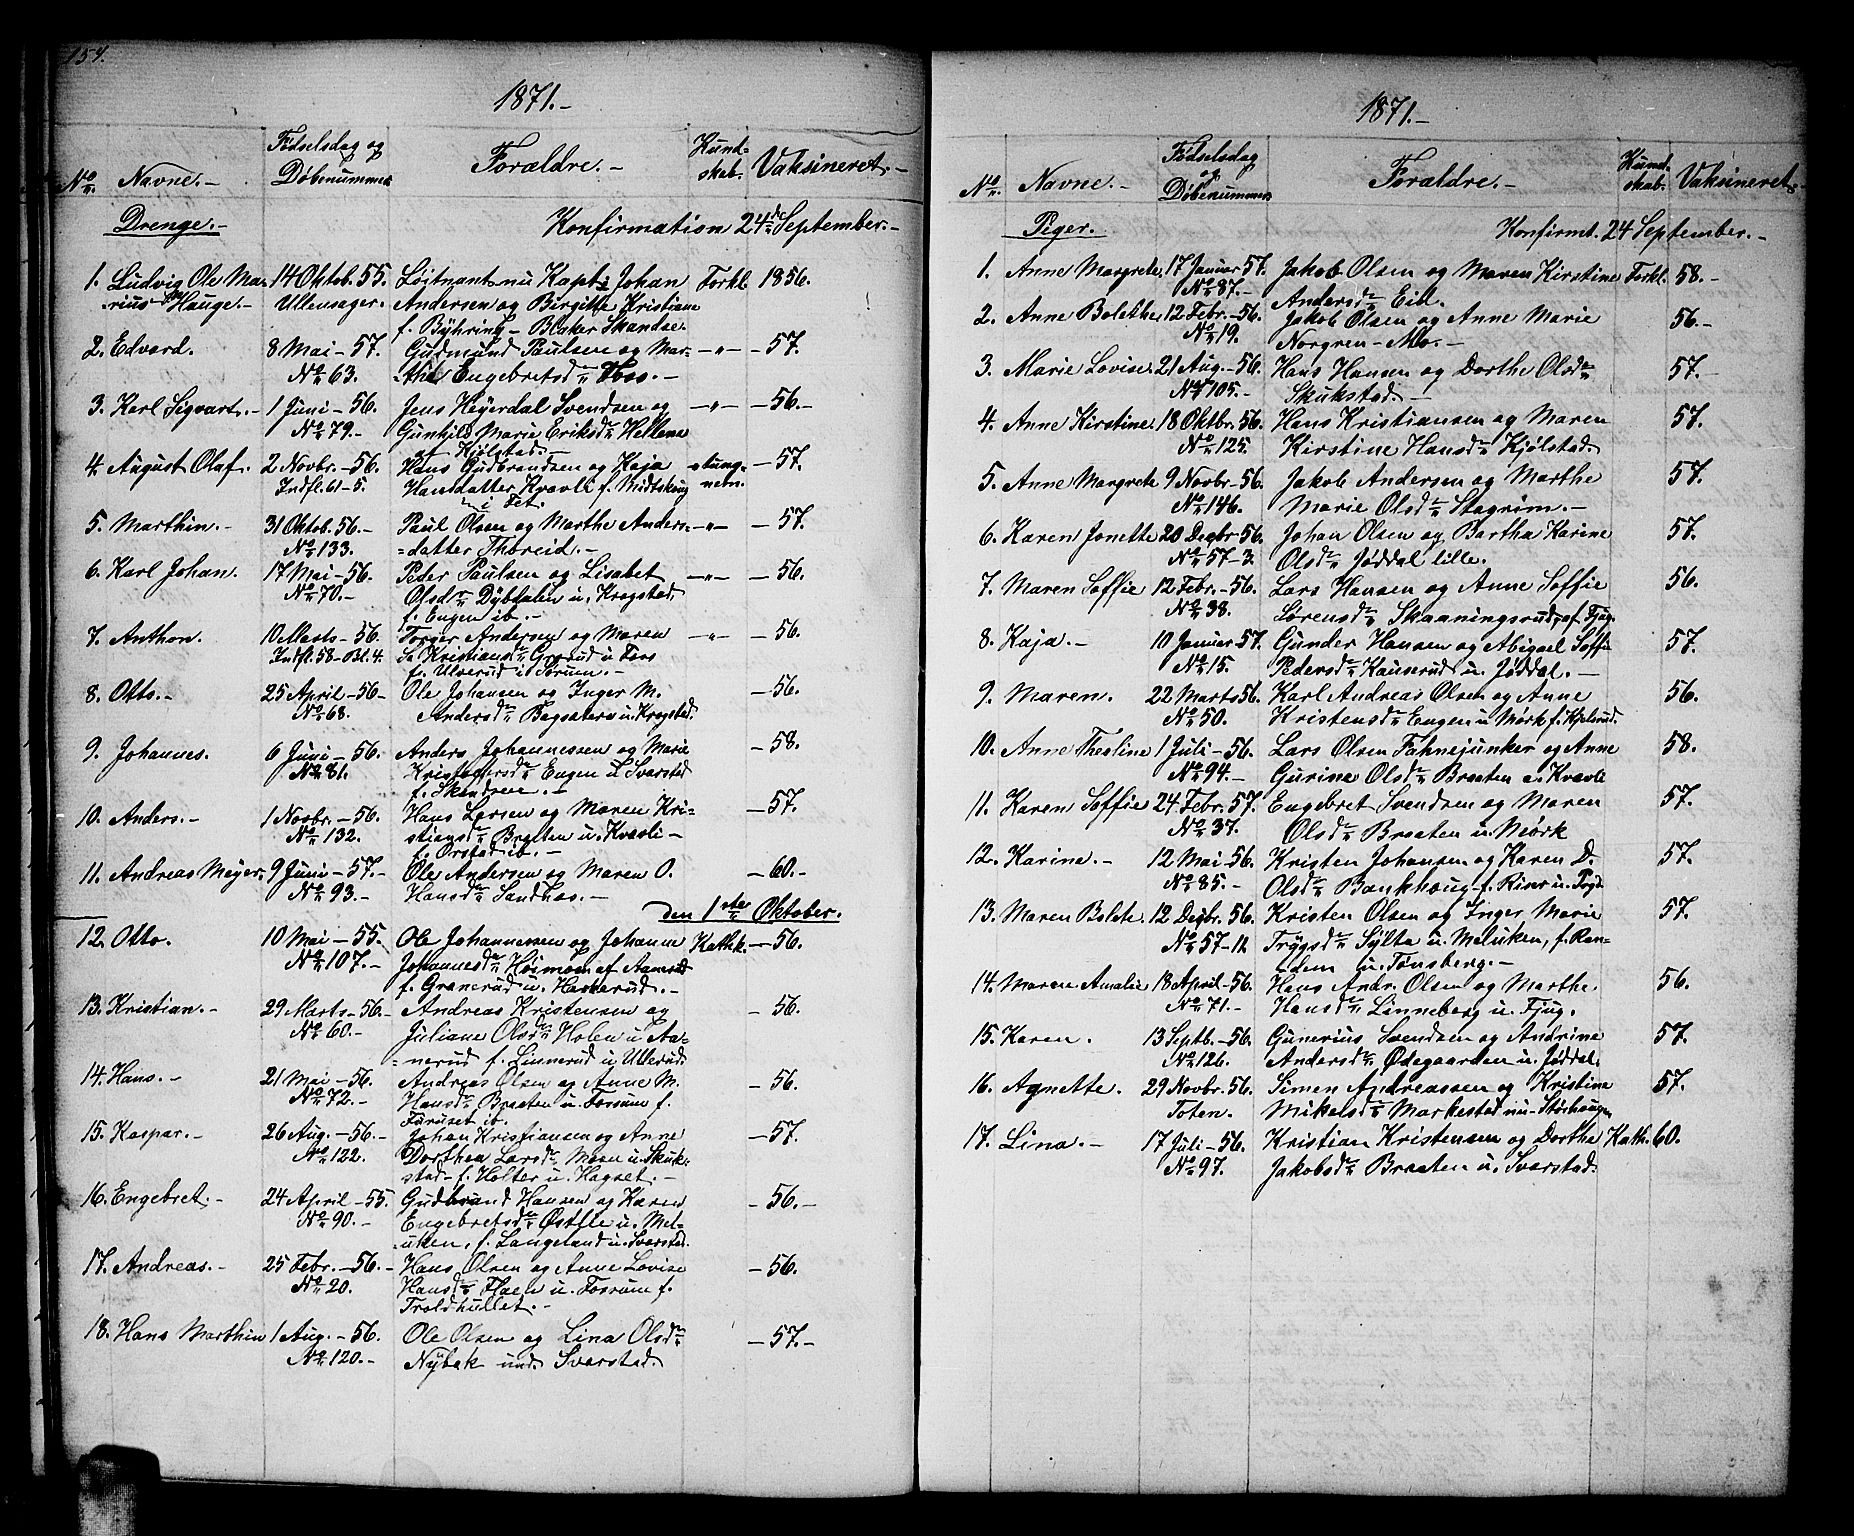 154.
1871.-
No. Navne.- Fødselsdag og Døbenummer Forældre.- Kund-skab. Vaksineret.-
Drenge.- Konfirmation 24de September.-
1. Ludvig Ole Ma- 14 Oktob. 55. Løjtnant nu Kapt. Johan Forkl. 1856.
rius Hauge.- Ullensager. Andersen og Birgitte Kristiane
f. Bÿhring- Blaker Skandse.
2. Edvard. 8 Mai-57. Gudmund Paulsen og Mar- -"- -57.
No. 63. the Engebretsdr. Foss.-
3. Karl Sigvart.- 1 Juni-56. Jens Heyerdal Svendsen og -"- -56.-
No. 79.- Gunhild Marie Eriksdr. Hellene
af Kjølstad.-
4. August Olaf. 2 Novbr.-56. Hans Gudbrandsen og Kaja -57.
Indfl. 61-5. Hansdatter Kravli f. Midtskoug
i Fet.
5. Marthin.- 31 Oktob. 56.- Paul Olsen og Marthe Anders- -"- -57.
No. 133. =datter Thoreid.-
6. Karl Johan. 17 Mai-56. Peder Paulsen og Lisabet -"- -56.
No. 70.- Olsdr. Dÿbdalen u. Krogstad,
f. Engen ib.-
7. Anthon. 10 Marts-56. Torger Andersen og Maren -"- -56.
Indfl. 58-Bl.4. Kristiansdr. u. Foss
f. Ulverud i Sørum.-
8. Otto.- 25 April-56- Ole Johansen og Inger M. -56.
No. 68. Andersdr. Bagsætern u. Krogstad.
9. Johannes. 6 Juni-56. Anders Johannessen og Marie -58.
No. 81. Kristophersdr. Engen u. Svarstad
f. Skandsen.-
10. Anders.- 1 Novbr.-56. Hans Larsen og Maren Kri- -57.
No. 132. stiansdr. Braaten u. Kvævli-
f. Ørstad ib.-
11. Andreas Meyer. 9 Juni-57.- Ole Andersen og Maren O. -60.-
No. 93.- Hansdr. Sandhas.-
den 1ste Oktober.
12. Otto. 10 Mai-55. Ole Johannessen og Johanne Kathk. -56.
No. 107.- Johannesdr. Høimoen af Aamodt
f. Granerud u. Haverud.-
13. Kristian.- 29 Marts-56- Andreas Kristensen og -56.
No. 60.- Juliane Olsdr. Holen u. Aa-
=nerud f. Linnerud u. Ullerud.
14. Hans.- 21 Mai-56. Andreas Olsen og Anne M. -56.
No. 72.- Hansdr. Braaten u. Forsum f.
Furuset ib.-
15. Kaspar.- 26 Aug.-56- Johan Kristiansen og Anne -57.
No. 122. Dorthea Larsdr. Moen u. Skuk-
stad- f. Holter u. Hagset.-
16. Engebret.- 24 April-55. Gudbrand Hansen og Karen -56.-
No. 90.- Engebretsdr. Østlie u. Mel-
=uken, f. Langeland u. Svarstad.
17. Andreas.- 25 Febr.-56.- Hans Olsen og Anne Lovise -56.
No. 20. Hansdr. Floen u. Forsum f.
Troldhullet.-
18. Hans Marthin 1 Aug.-56. Ole Olsen og Lina Olsdr. -57.-
No. 120.- Nÿbak und. Svarstad.
1871.-
No. Navne.- Fødselsdag og Døbenummer Forældre.- Kund-skab. Vaksineret.
Piger. Konfirmt. 24 September.-
1. Anne Margrete. 17 Januar 57. Jakob Olsen og Maren Kirstine Forkl. 58.-
No. 87.- Andersdr. Eid.
2. Anne Bolethe 12 Febr.-56. Jakob Olsen og Anne Marie 56.-
No. 19. Norgren-Mo.-
3. Marie Lovise. 21 Aug.-56. Hans Hansen og Dorthe Olsdr. 57.-
No. 105. Skukstad.-
4. Anne Kirstine 18 Oktbr. 56. Hans Kristiansen og Maren 57.
No. 125. Kirstine Hansdr. Kjølstad.
5. Anne Margrete 9 Novbr-56. Jakob Andersen og Marthe 57.
No. 146. Marie Olsdr. Stagrim.-
6. Karen Jonette 20 Decbr 56. Johan Olsen og Bartha Karine 57.
No. 57-3. Olsdr. Jøddal lille.
7. Maren Soffie 12 Febr.-56. Lars Hansen og Anne Soffie 56.
No. 38. Lorensdr. Skaaningsrud, af Fjug.
8. Kaja.- 10 Januar 57. Gunder Hansen og Abigael Soffie 57.
No. 15. Pedersdr. Kauserud u. Jøddal.-
9. Maren. 22 Marts 56. Karl Andreas Olsen og Anne 56.
No. 50. Kristensdr. Engen u. Mørk f. Kjelsrud.
10. Anne Theoline 1 Juli-56. Lars Olsen Fahnejunker og Anne 58.
No. 94.- Gurine Olsdr. Braaten u. Kvævli
11. Karen Soffie 24 Febr. 57. Engebret Svendsen og Maren 57.
No. 37. Olsdr. Braaten u. Mørk
12. Karine.- 12 Mai-56. Kristen Johansen og Karen D. 57.
No. 85.- Olsdr. Bankhoug f. Riser u.
13. Maren Bolete. 12 Decbr. 56. Kristen Olsen og Inger Marie 57.
No. 57-12 Trÿgsdr. Sÿlta u. Meluken, f. Ran-
dem u. Tønsberg.-
14. Maren Amalie 18 April-56. Hans Andr. Olsen og Marthe 56.
No. 71.- Hansdr. Linneberg u. Fjug.
15. Karen. 13 Septb.-56. Gunerius Svendsen og Andrine 57.
No. 126. Andersdr. Ødegaarden u. Jøddal.
16. Agnette. 29 Novbr. 56. Simen Andreassen og Kristine 57.
Toten. Mikelsdr. Markestad nu Storhaugen
17. Lina.- 17 Juli-56. Kristian Kristensen og Dorthea Kath. 60.
No. 97. Jakobsdr. Braaten u. Svarstad.